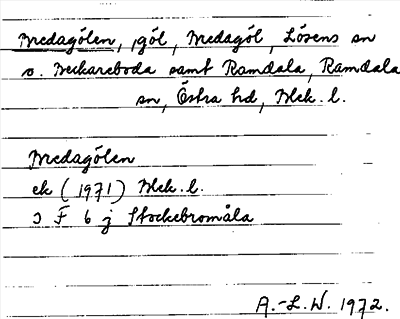 Bredagölen, göl, Bredagöl, Lösens sn
o. Beckareboda samt Ramdala, Ramdala
sn, Östra hd, Blek. l.
Bredagölen
ek (1971) Blek. l.
3 F 6 j Stockebromåla
A.-L.W. 1972.